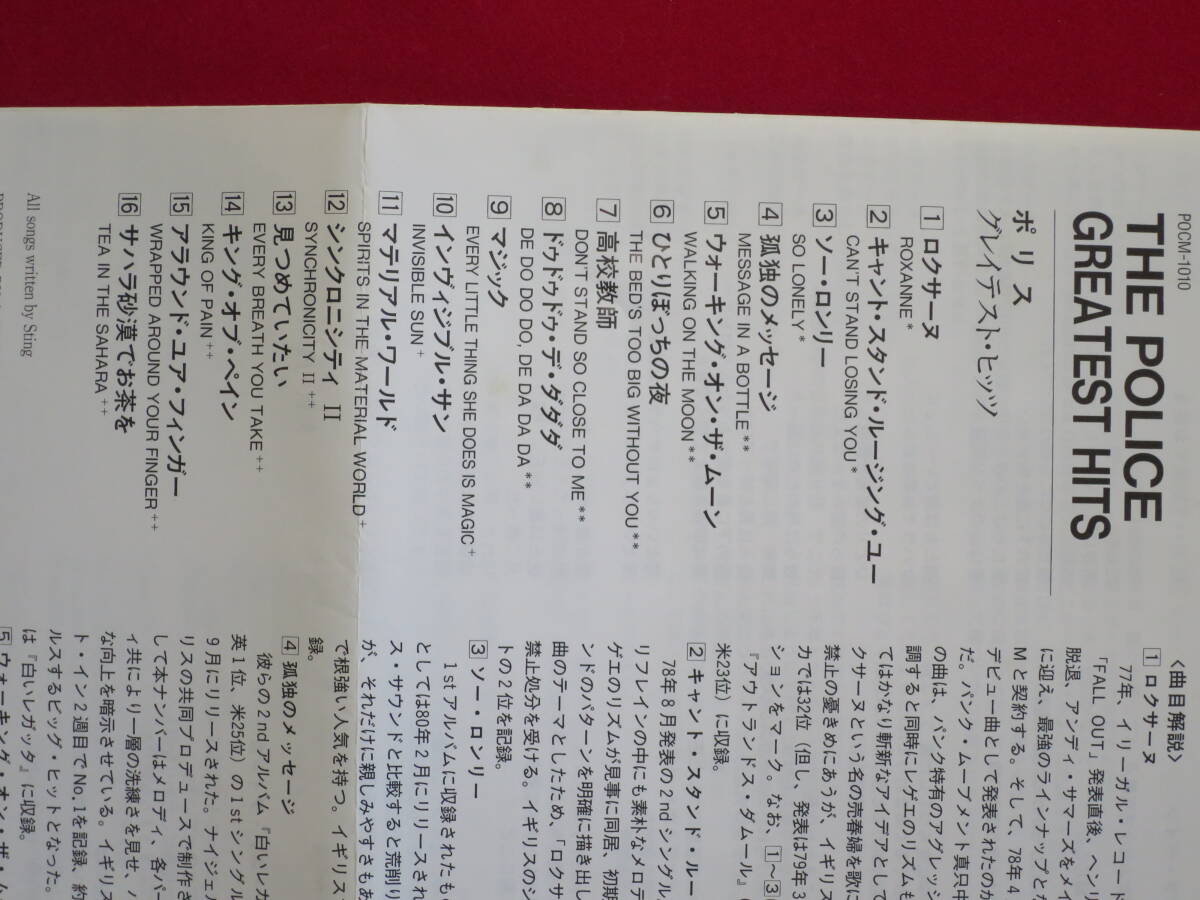 POCM-1010
THE POLICE
GREATEST HITS
ポリス
グレイテスト・ヒッツ
1 ロクサーヌ
ROXANNE *
2 キャント・スタンド・ルージング・ユー
CAN'T STAND LOSING YOU *
3 ソー・ロンリー
SO LONELY *
4 孤独のメッセージ
MESSAGE IN A BOTTLE **
5 ウォーキング・オン・ザ・ムーン
WALKING ON THE MOON **
6 ひとりぼっちの夜
THE BED'S TOO BIG WITHOUT YOU **
7 高校教師
DON'T STAND SO CLOSE TO ME **
8 ドゥドゥドゥ・デ・ダダダ
DE DO DO DO, DE DA DA DA **
9 マジック
EVERY LITTLE THING SHE DOES IS MAGIC +
10 インヴィジブル・サン
INVISIBLE SUN +
11 マテリアル・ワールド
SPIRITS IN THE MATERIAL WORLD +
12 シンクロニシティ II
SYNCHRONICITY II ++
13 見つめていたい
EVERY BREATH YOU TAKE ++
14 キング・オブ・ペイン
KING OF PAIN ++
15 アラウンド・ユア・フィンガー
WRAPPED AROUND YOUR FINGER ++
16 サハラ砂漠でお茶を
TEA IN THE SAHARA ++
All songs written by Sting
〈曲目解説〉
1 ロクサーヌ
77年、イリーガル・レコード
「FALL OUT」発表直後、ヘンリ
脱退、アンディ・サマーズをメイ
に迎え、最強のラインナップとな
Mと契約する。そして、78年4
デビュー曲として発表されたのが
だ。パンク・ムーブメント真只中
の曲は、パンク特有のアグレッシ
調すると同時にレゲエのリズムも
てはかなり斬新なアイデアとして
クサーヌという名の売春婦を歌に
禁止の憂きめにあうが、イギリス
カでは32位（但し、発表は79年3
ションをマーク。なお、1～3
『アウトランドス・ダムール』
米23位）に収録。
2 キャント・スタンド・ルー
78年8月発表の2ndシングル
リフレインの中にも素朴なメロデ
ゲエのリズムが見事に同居、初期
ンドのパターンを明確に描き出し
曲のテーマとしたため、「ロクサ
禁止処分を受ける。イギリスのシ
トの2位を記録。
3 ソー・ロンリー
1stアルバムに収録されたもの
としては80年2月にリリースされ
ス・サウンドと比較すると荒削り
が、それだけに親しみやすさもあ
で根強い人気を持つ。イギリス
録。
4 孤独のメッセージ
彼らの2ndアルバム『白いレガ
英1位、米25位）の1stシングル
9月にリリースされた。ナイジェル
リスの共同プロデュースで制作さ
して本ナンバーはメロディ、各パー
ィ共により一層の洗練さを見せ、ノ
な向上を暗示させている。イギリス
ト・イン2週目でNo.1を記録、約
ルスするビッグ・ヒットとなった。
は『白いレガッタ』に収録。
5 ウォーキング・オン・ザ・ム